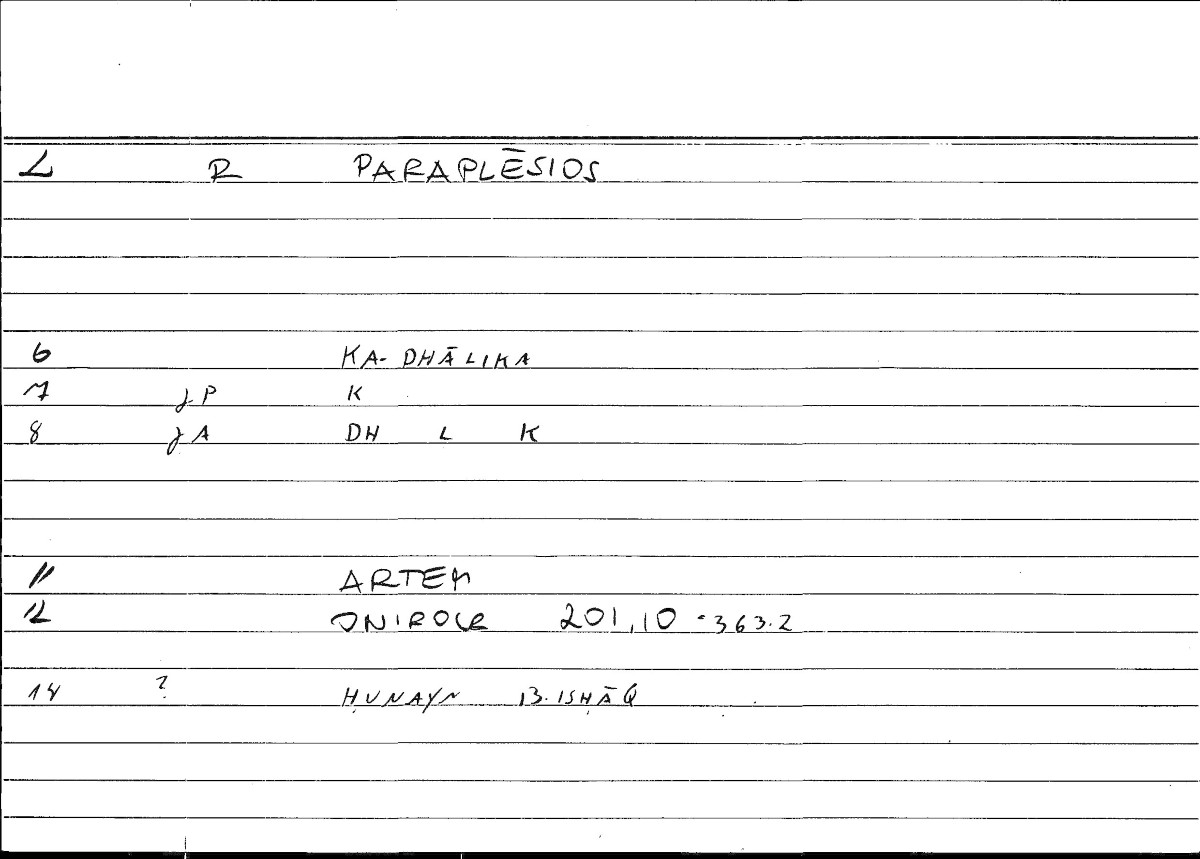 L R PARAPLĒSIOS
6 KA-DHĀLIKA
7 jP K
8 jA DH L K
11 ARTEM
12 ONIROCR 201,10 = 363.2
14 ? ḤUNAYN B.ISḤĀQ